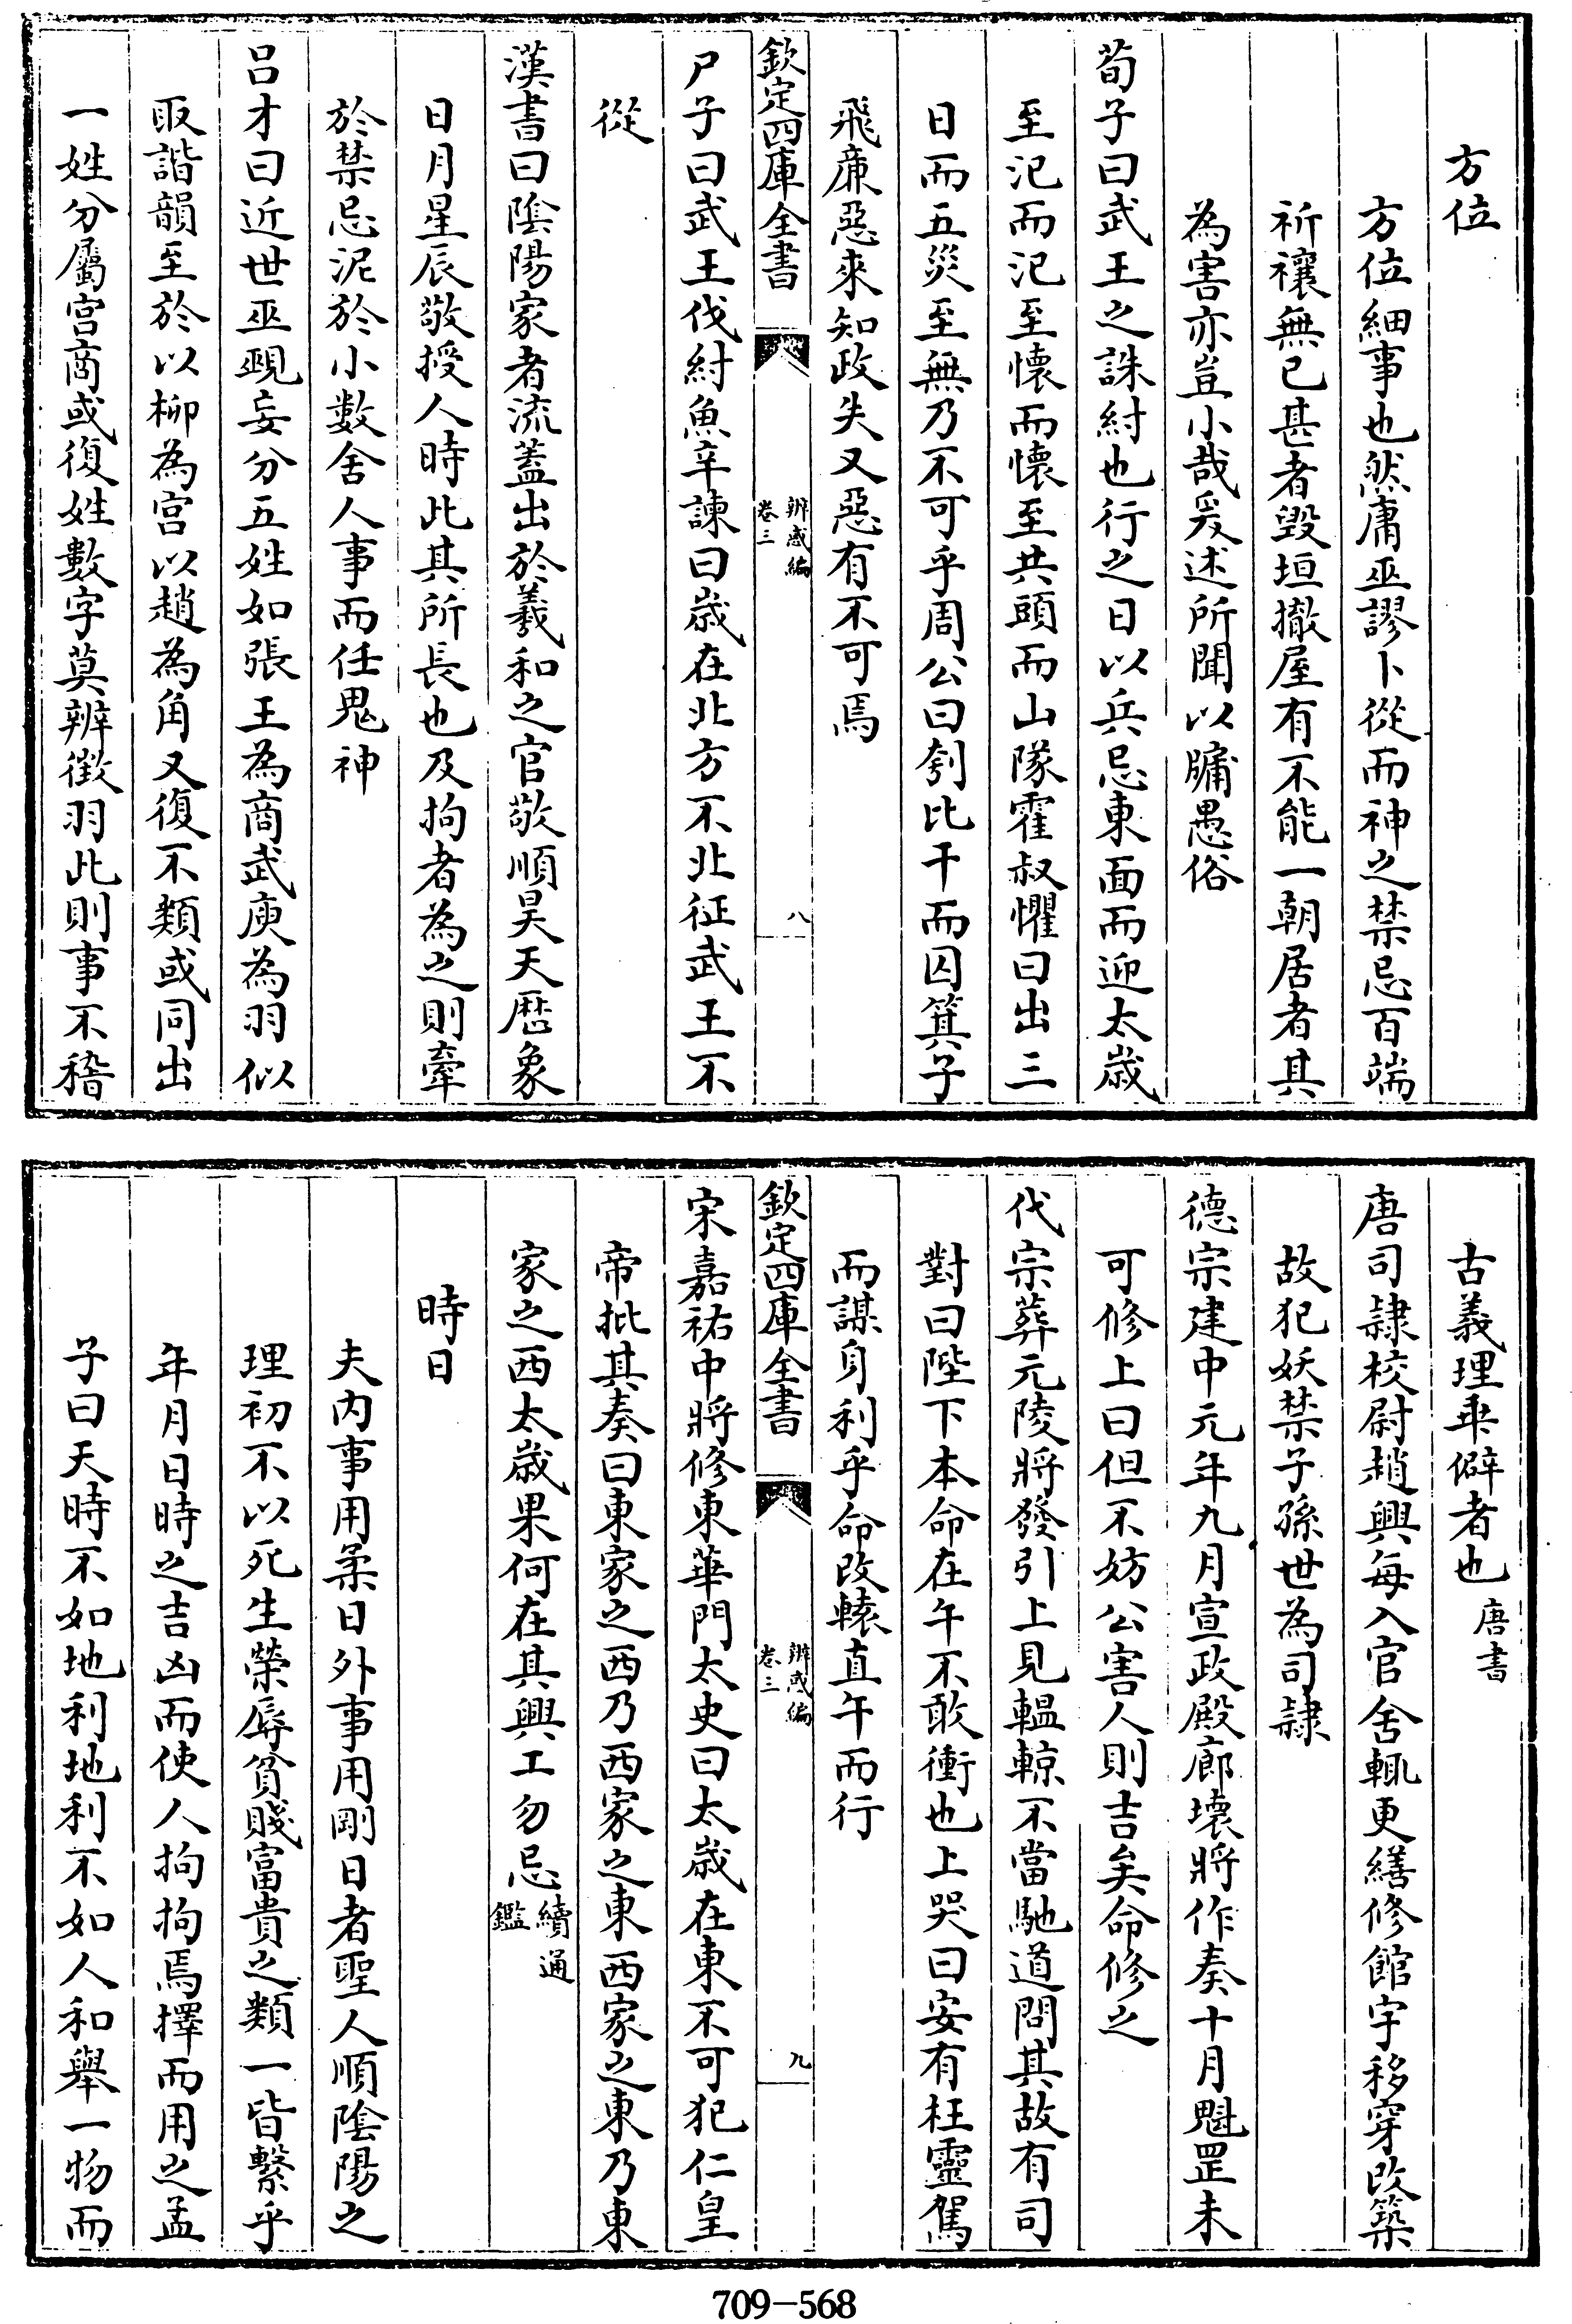 方位
方位細事也然庸巫謬卜從而神之禁忌百端
祈禳無已甚者毀垣撤屋有不能一朝居者其
為害亦豈小哉爰述所聞以牖愚俗
荀子曰武王之誅紂也行之日以兵忌東面而迎太歲
至汜而汜至懷而懷至共頭而山隊霍叔懼曰出三
日而五災至無乃不可乎周公曰刳比干而囚箕子
飛亷惡來知政夫又惡有不可焉
欽定四庫全書
辨惑編
卷三
八
尸子曰武王伐紂魚辛諫曰歲在北方不北征武王不
從
漢書曰隂陽家者流蓋出於羲和之官敬順昊天歴象
日月星辰敬授人時此其所長也及拘者為之則牽
於禁忌泥於小數舍人事而任鬼神
吕才曰近世巫覡妄分五姓如張王為商武庾為羽似
取諧韻至於以柳為宮以趙為角又復不類或同出
一姓分屬宫商或復姓數字莫辨徵羽此則事不稽
古義理乖僻者也唐書
唐司隷校尉趙興每入官舍輒更繕修館宇移穿改築
故犯妖禁子孫世為司隷
德宗建中元年九月宣政殿廊壊將作奏十月魁罡未
可修上曰但不妨公害人則吉矣命修之
代宗葬元陵將發引上見轀輬不當馳道問其故有司
對曰陛下本命在午不敢衝也上哭曰安有枉靈駕
而謀身利乎命改轅直午而行
欽定四庫全書
辨惑編
卷三
九
宋嘉祐中將修東華門太史曰太歲在東不可犯仁皇
帝批其奏曰東家之西乃西家之東西家之東乃東
家之西太歲果何在其興工勿忌續通鑑
時日
夫内事用柔日外事用剛日者聖人順隂陽之
理初不以死生榮辱貧賤富貴之類一皆繫乎
年月日時之吉凶而使人拘拘焉擇而用之孟
子曰天時不如地利地利不如人和舉一物而
709-568